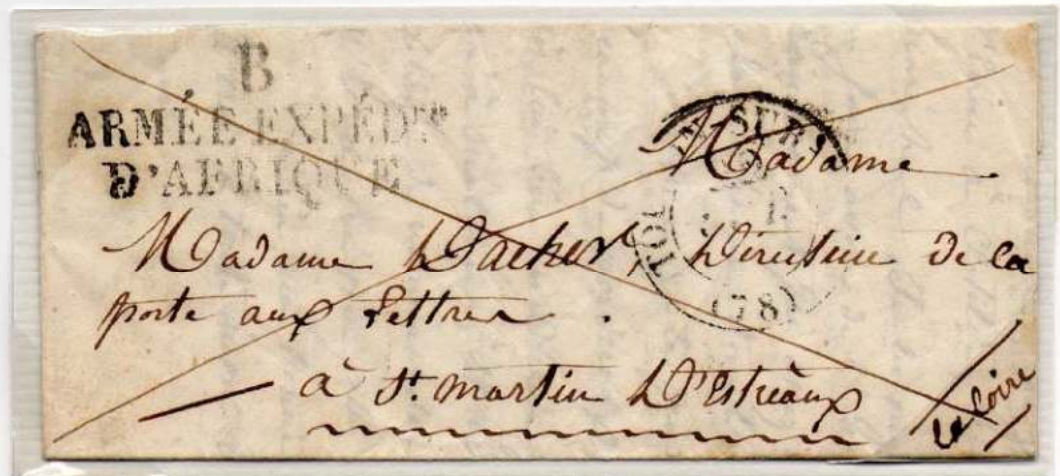 B
ARMÉE EXPÉD.re
D'AFRIQUE
TOU N-SUR
(78)
Madame
Madame Directrice De la
poste aux Lettres .
à St. martin D'Estréaux
La Loire